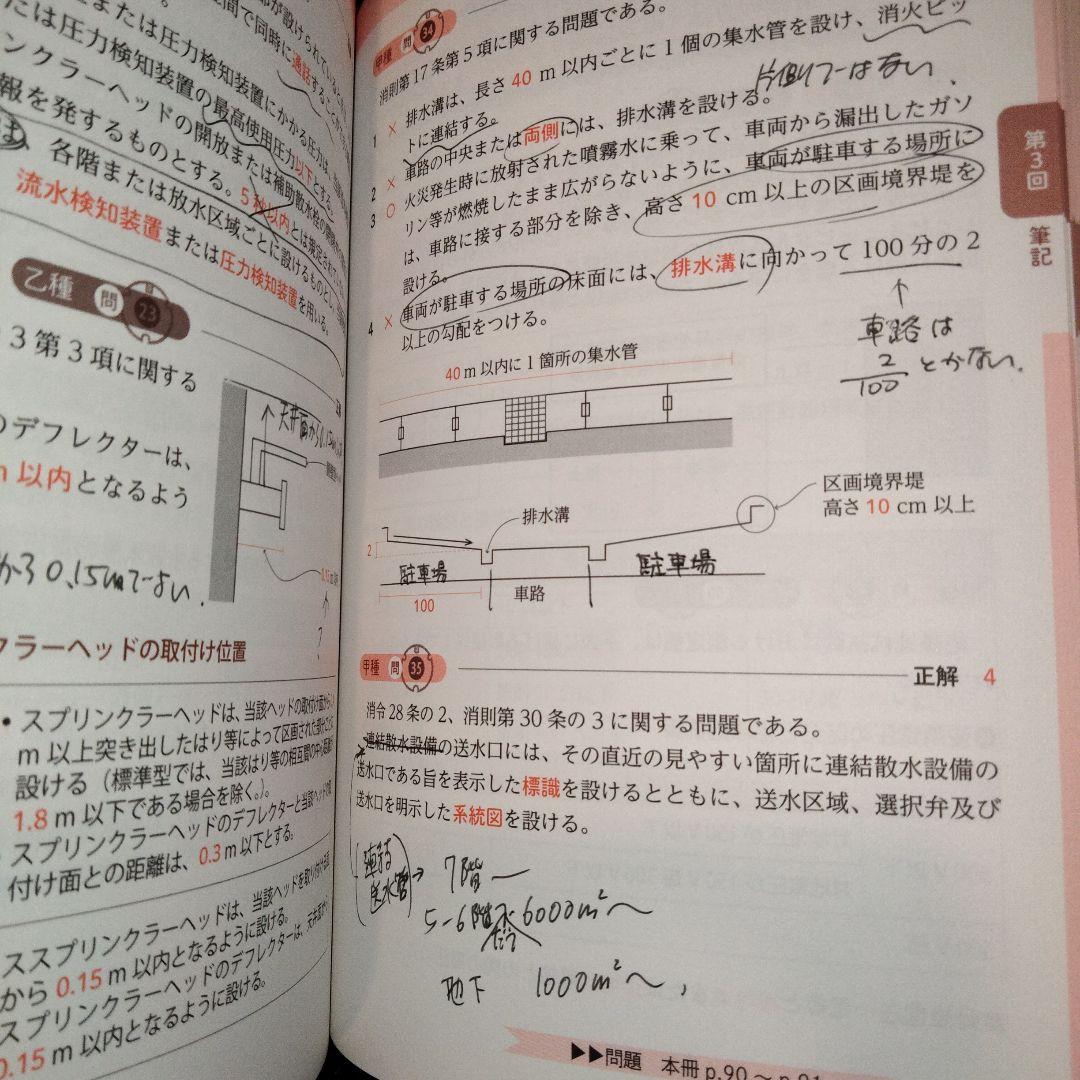 または圧力検知装置にかかる圧力は、
たは圧力検知装置の最高使用圧力以下とする。
ンクラーヘッドの開放または補助散水栓の開
報を発するものとする。5秒以内とは規定されて
は、各階または放水区域ごとに設けるものとし、
流水検知装置または圧力検知装置を用いる。
乙種 問 23
3第3項に関する
のデフレクターは、
m以内となるよう
天井面から0.15m
から0.15mでない.
0.15m
?
クラーヘッドの取付け位置
• スプリンクラーヘッドは、当該ヘッドの取付け面から
m以上突き出したはり等によって区画された部分ごとに
設ける（標準型では、当該はり等の相互間の中心距離が
1.8m以下である場合を除く。）。
スプリンクラーヘッドのデフレクターと当該ヘッドの取
付け面との距離は、0.3m以下とする。
ススプリンクラーヘッドは、当該ヘッドを取り付ける
から0.15m以内となるように設ける。
スプリンクラーヘッドのデフレクターは、天井面から
0.15m以内となるように設ける。
甲種 問 34
消則第17条第5項に関する問題である。
1 × 排水溝は、長さ40m以内ごとに1個の集水管を設け、消火ピッ
トに連結する。
片側ではない.
2 × 車路の中央または両側には、排水溝を設ける。
3 ○ 火災発生時に放射された噴霧水に乗って、車両から漏出したガソ
リン等が燃焼したまま広がらないように、車両が駐車する場所に
は、車路に接する部分を除き、高さ10cm以上の区画境界堤を
設ける。
4 × 車両が駐車する場所の床面には、排水溝に向かって100分の2
以上の勾配をつける。
↑
車路は
2/100 とかない.
40m以内に1箇所の集水管
区画境界堤
高さ10cm以上
排水溝
2
駐車場
駐車場
100
車路
甲種 問 35
正解 4
消令28条の2、消則第30条の3に関する問題である。
連結散水設備の送水口には、その直近の見やすい箇所に連結散水設備の
送水口である旨を表示した標識を設けるとともに、送水区域、選択弁及び
送水口を明示した系統図を設ける。
連結
送水管 → 7階〜
5-6階 6000m²〜
地下 1000m²〜,
▶▶問題 本冊p.90〜p.91
第3回
筆記